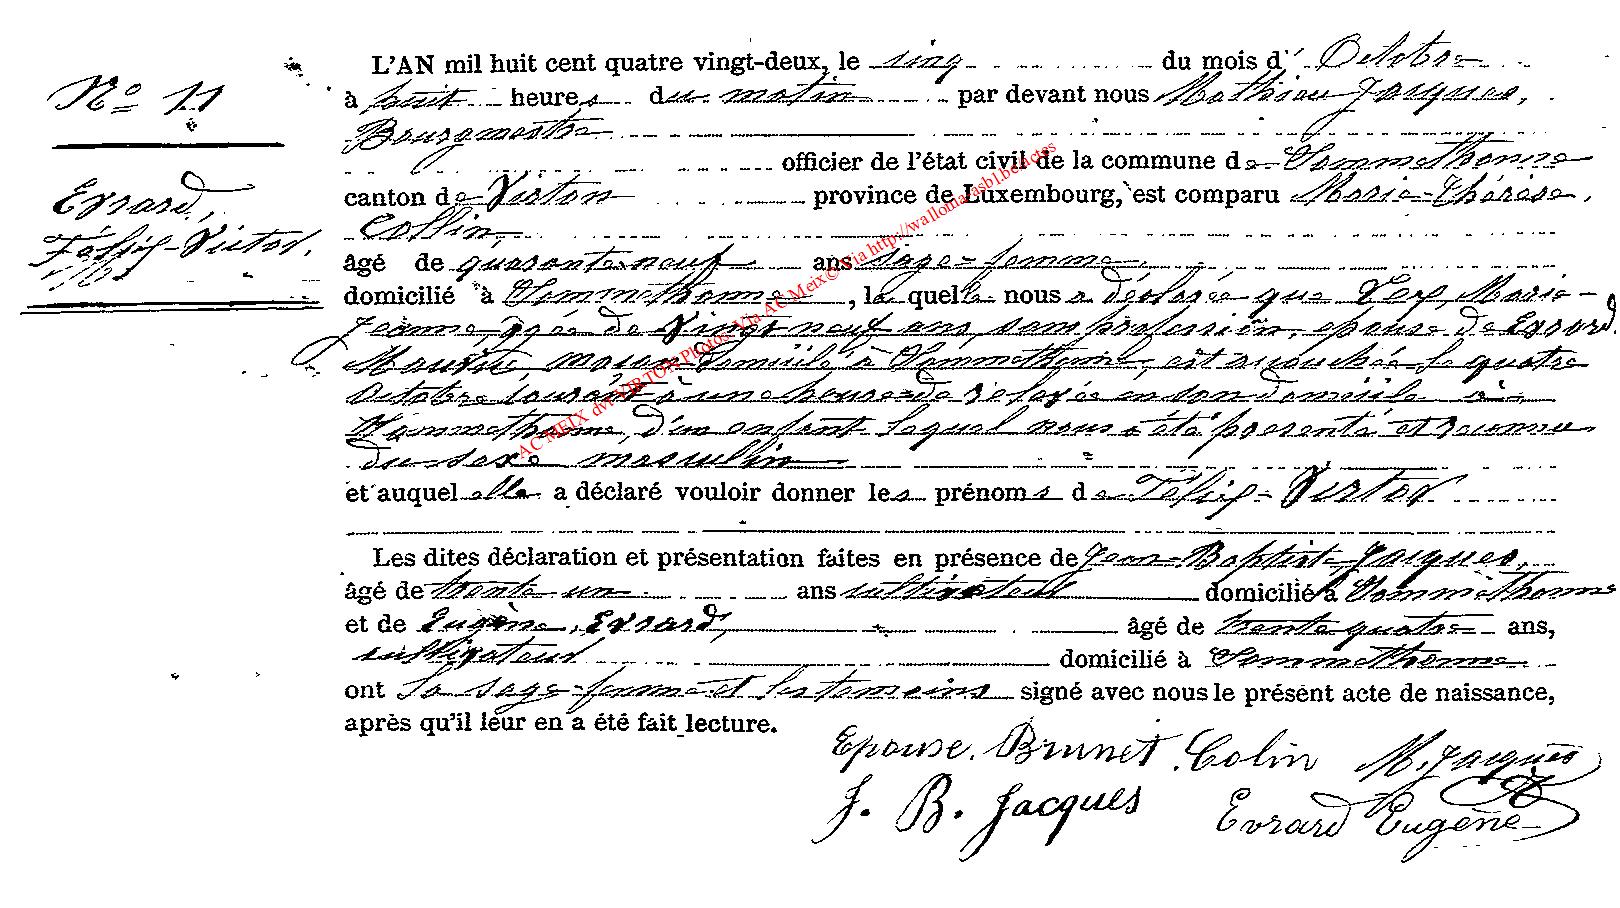 N° 11
Evrard,
Félix-Victor.
L'AN mil huit cent quatre vingt-deux, le cinq du mois d' Octobre
à huit heures du matin par devant nous Mathieu Jacques,
Bourgmestre
officier de l'état civil de la commune de Sommethonne
canton de Virton province de Luxembourg, est comparu Marie-Thérèse
Collin,
âgé de quarante-neuf ans sage-femme,
domicilié à Sommethonne, laquelle nous a déclaré que Marie-
Jeanne, agée de Vingt neuf ans, sans profession, épouse de Evrard
domicilié à Sommethonne, est accouchée le quatre
Octobre courant à une heure de relevée en son domicile à
Sommethonne, d'un enfant lequel nous a été présenté et reconnu
du sexe masculin
et auquel elle a déclaré vouloir donner les prénoms de Félix-Victor
Les dites déclaration et présentation faites en présence de Jean-Baptiste Jacques,
âgé de trente un ans cultivateur domicilié à Sommethonne
et de Eugène Evrard, âgé de trente quatre ans,
cultivateur domicilié à Sommethonne
ont la sage-femme et les temoins signé avec nous le présent acte de naissance,
après qu'il leur en a été fait lecture.
Epouse Brunet Colin M. Jacques
J. B. Jacques Evrard Eugène
AC MEIX dvt VIRTON Photos Via AC Meix © Via http://wallonia-asbl.be/actes